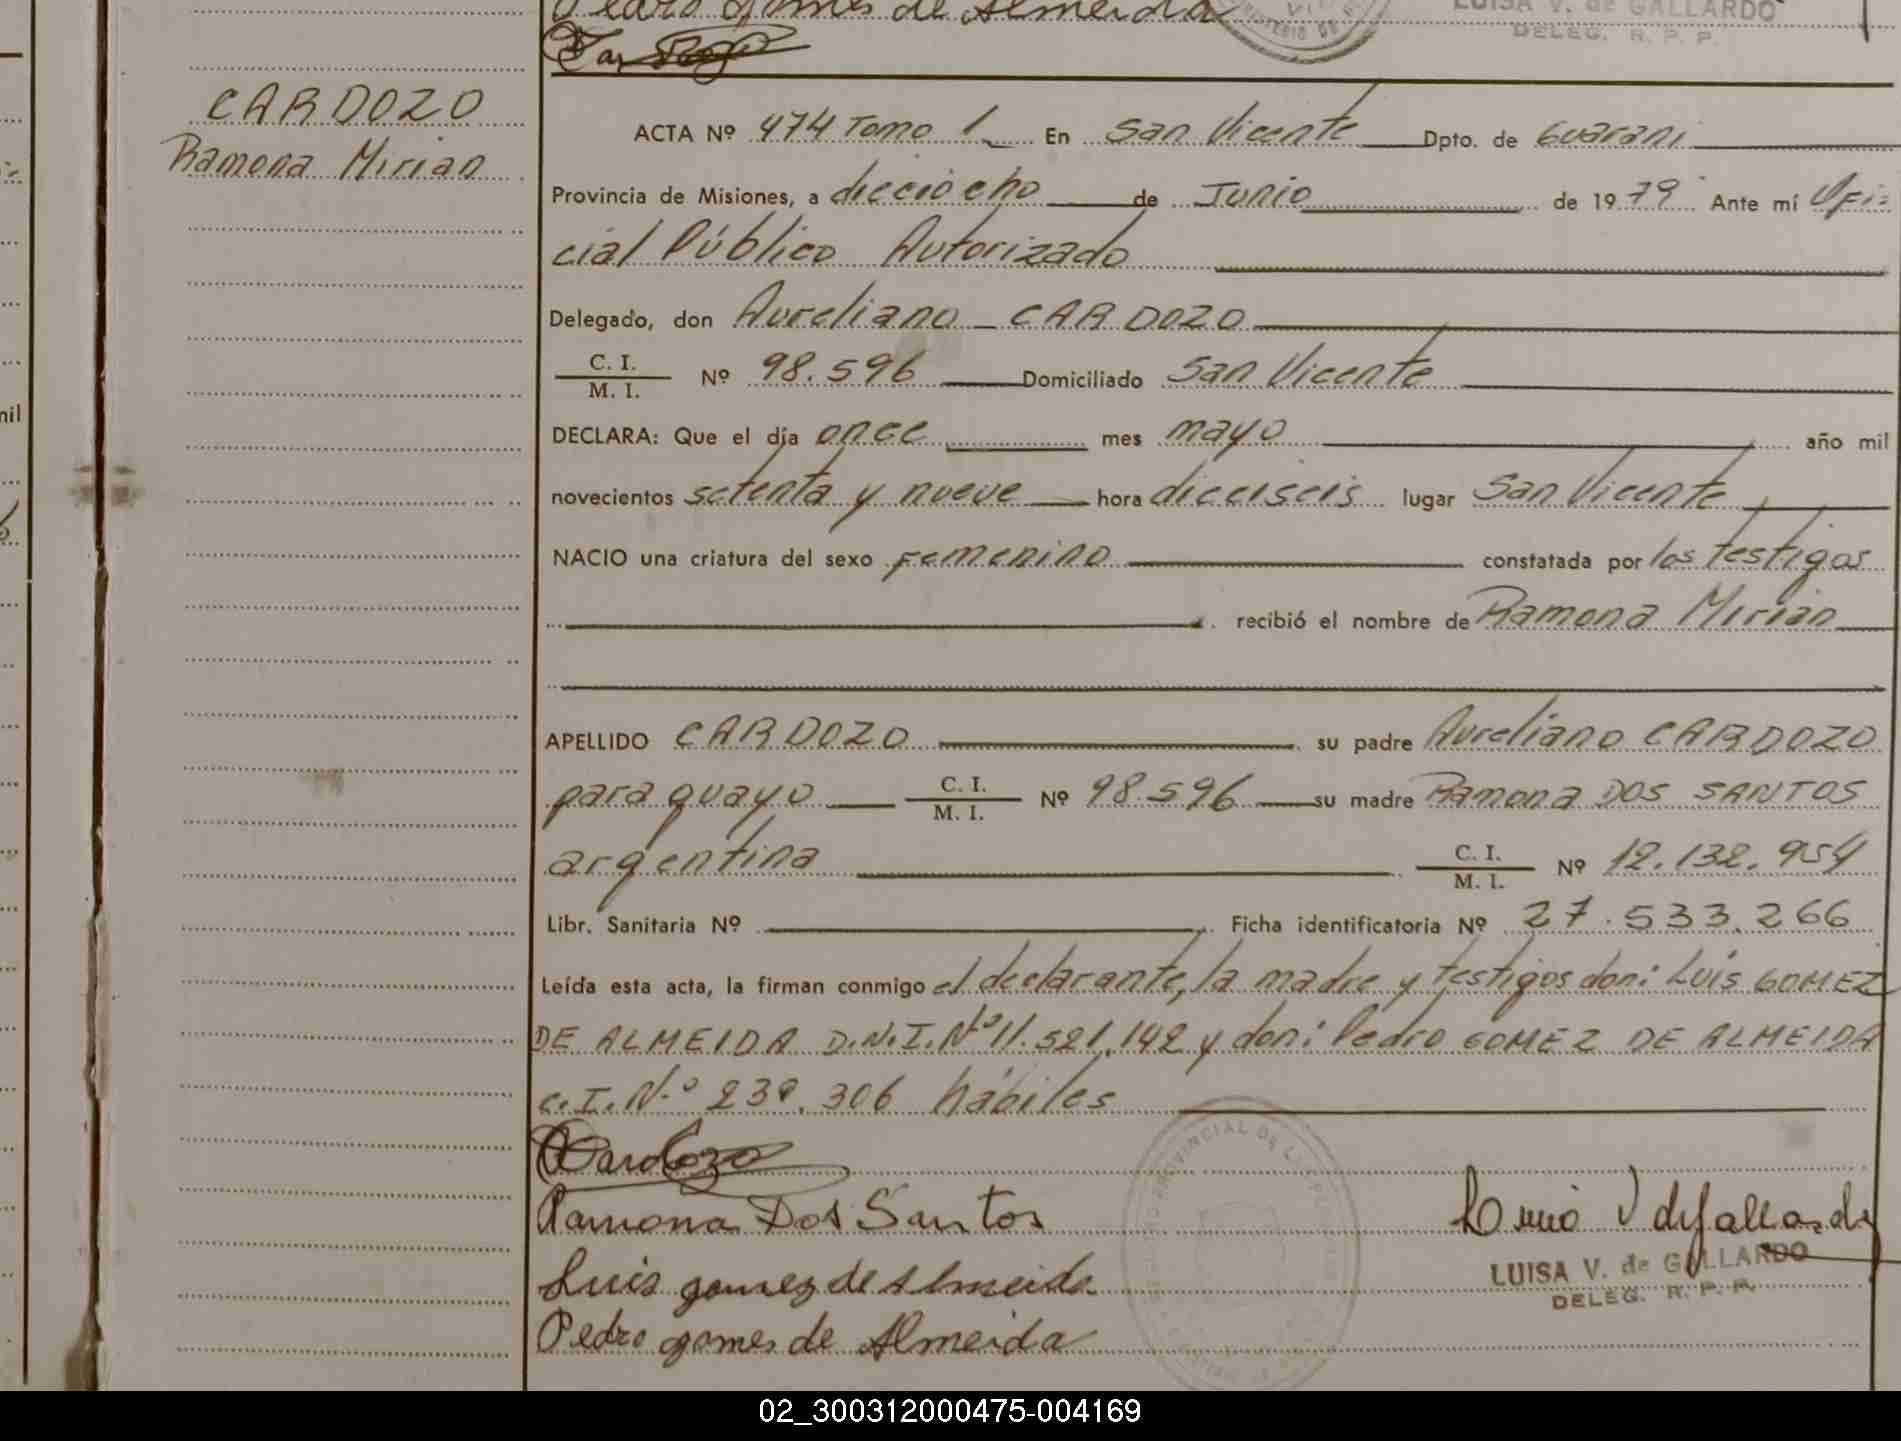 Pedro gomes de Almeida
LUISA V. de GALLARDO
DELEG. R. P. P.
CARDOZO
Ramona Mirian
ACTA Nº 474 Tomo 1 En San Vicente Dpto. de Guarani
Provincia de Misiones, a dieciocho de Junio de 1979 Ante mí Ofi-
cial Público Autorizado
Delegado, don Aureliano CARDOZO
C. I.
M. I. Nº 98.596 Domiciliado San Vicente
DECLARA: Que el día once mes mayo año mil
novecientos setenta y nueve hora dieciseis lugar San Vicente
NACIO una criatura del sexo Femenino constatada por los testigos
recibió el nombre de Ramona Mirian
APELLIDO CARDOZO su padre Aureliano CARDOZO
paraguayo C. I.
M. I. Nº 98.596 su madre Ramona DOS SANTOS
argentina C. I.
M. I. Nº 12.132.954
Libr. Sanitaria Nº Ficha identificatoria Nº 27.533.266
Leída esta acta, la firman conmigo el declarante, la madre y testigos don: Luis GOMEZ
DE ALMEIDA D.N.I. Nº 11.521.142 y don: Pedro GOMEZ DE ALMEIDA
C.I. N.º 239.306 hábiles
Cardozo
Ramona Dos Santos
Luis gomez de Almeida
Pedro gomes de Almeida
LUISA V. de GALLARDO
DELEG. R. P. P.
02_300312000475-004169